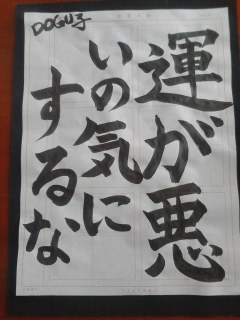 運が悪
いの気に
するな
DOGU子